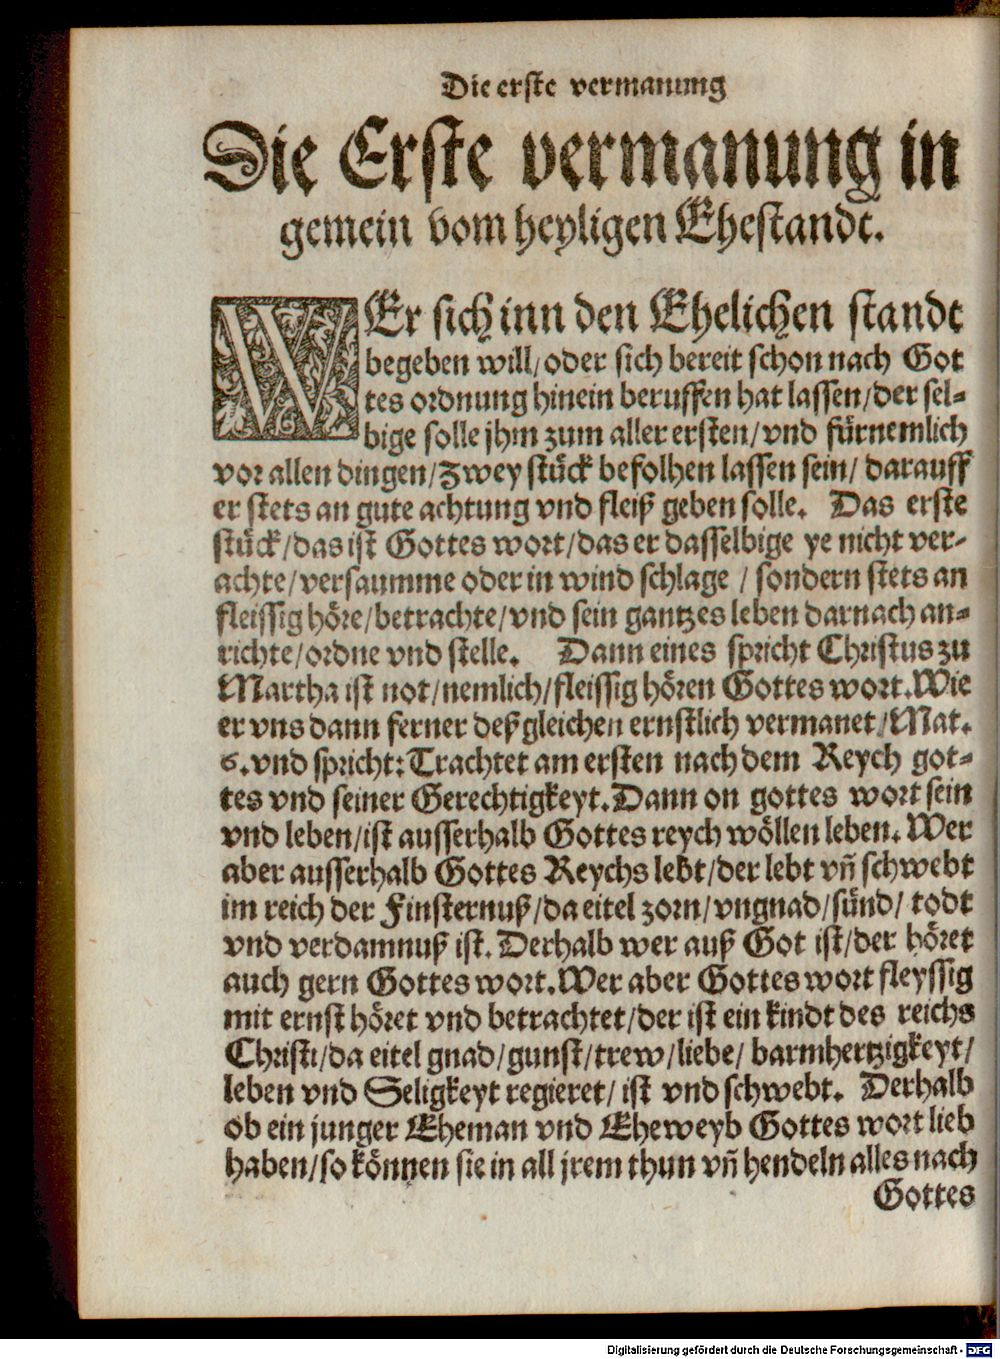 Die erste vermanung
Die Erste vermanung in
gemein vom heyligen Ehestandt.
WEr sich inn den Ehelichen standt
begeben will/oder sich bereit schon nach Got
tes ordnung hinein beruffen hat lassen/der sel-
bige solle jhm zum aller ersten/vnd fürnemlich
vor allen dingen/zwey stück befolhen lassen sein/ darauff
er stets an gute achtung vnd fleiß geben solle. Das erste
stück/das ist Gottes wort/das er dasselbige ye nicht ver-
achte/versaumme oder in wind schlage / sondern stets an
fleissig höre/betrachte/vnd sein gantzes leben darnach an-
richte/ordne vnd stelle. Dann eines spricht Christus zu
Martha ist not/nemlich/fleissig hören Gottes wort.Wie
er vns dann ferner deßgleichen ernstlich vermanet/Mat.
6.vnd spricht:Trachtet am ersten nach dem Reych got-
tes vnd seiner Gerechtigkeyt.Dann on gottes wort sein
vnd leben/ist ausserhalb Gottes reych wöllen leben. Wer
aber ausserhalb Gottes Reychs lebt/der lebt vñ schwebt
im reich der Finsternuß/da eitel zorn/vngnad/sünd/ todt
vnd verdamnuß ist.Derhalb wer auß Got ist/der höret
auch gern Gottes wort.Wer aber Gottes wort fleyssig
mit ernst höret vnd betrachtet/der ist ein kindt des reichs
Christi/da eitel gnad/gunst/trew/liebe/ barmhertzigkeyt/
leben vnd Seligkeyt regieret/ ist vnd schwebt. Derhalb
ob ein junger Eheman vnd Eheweyb Gottes wort lieb
haben/so können sie in all jrem thun vñ hendeln alles nach
Gottes
Digitalisierung gefördert durch die Deutsche Forschungsgemeinschaft - DFG